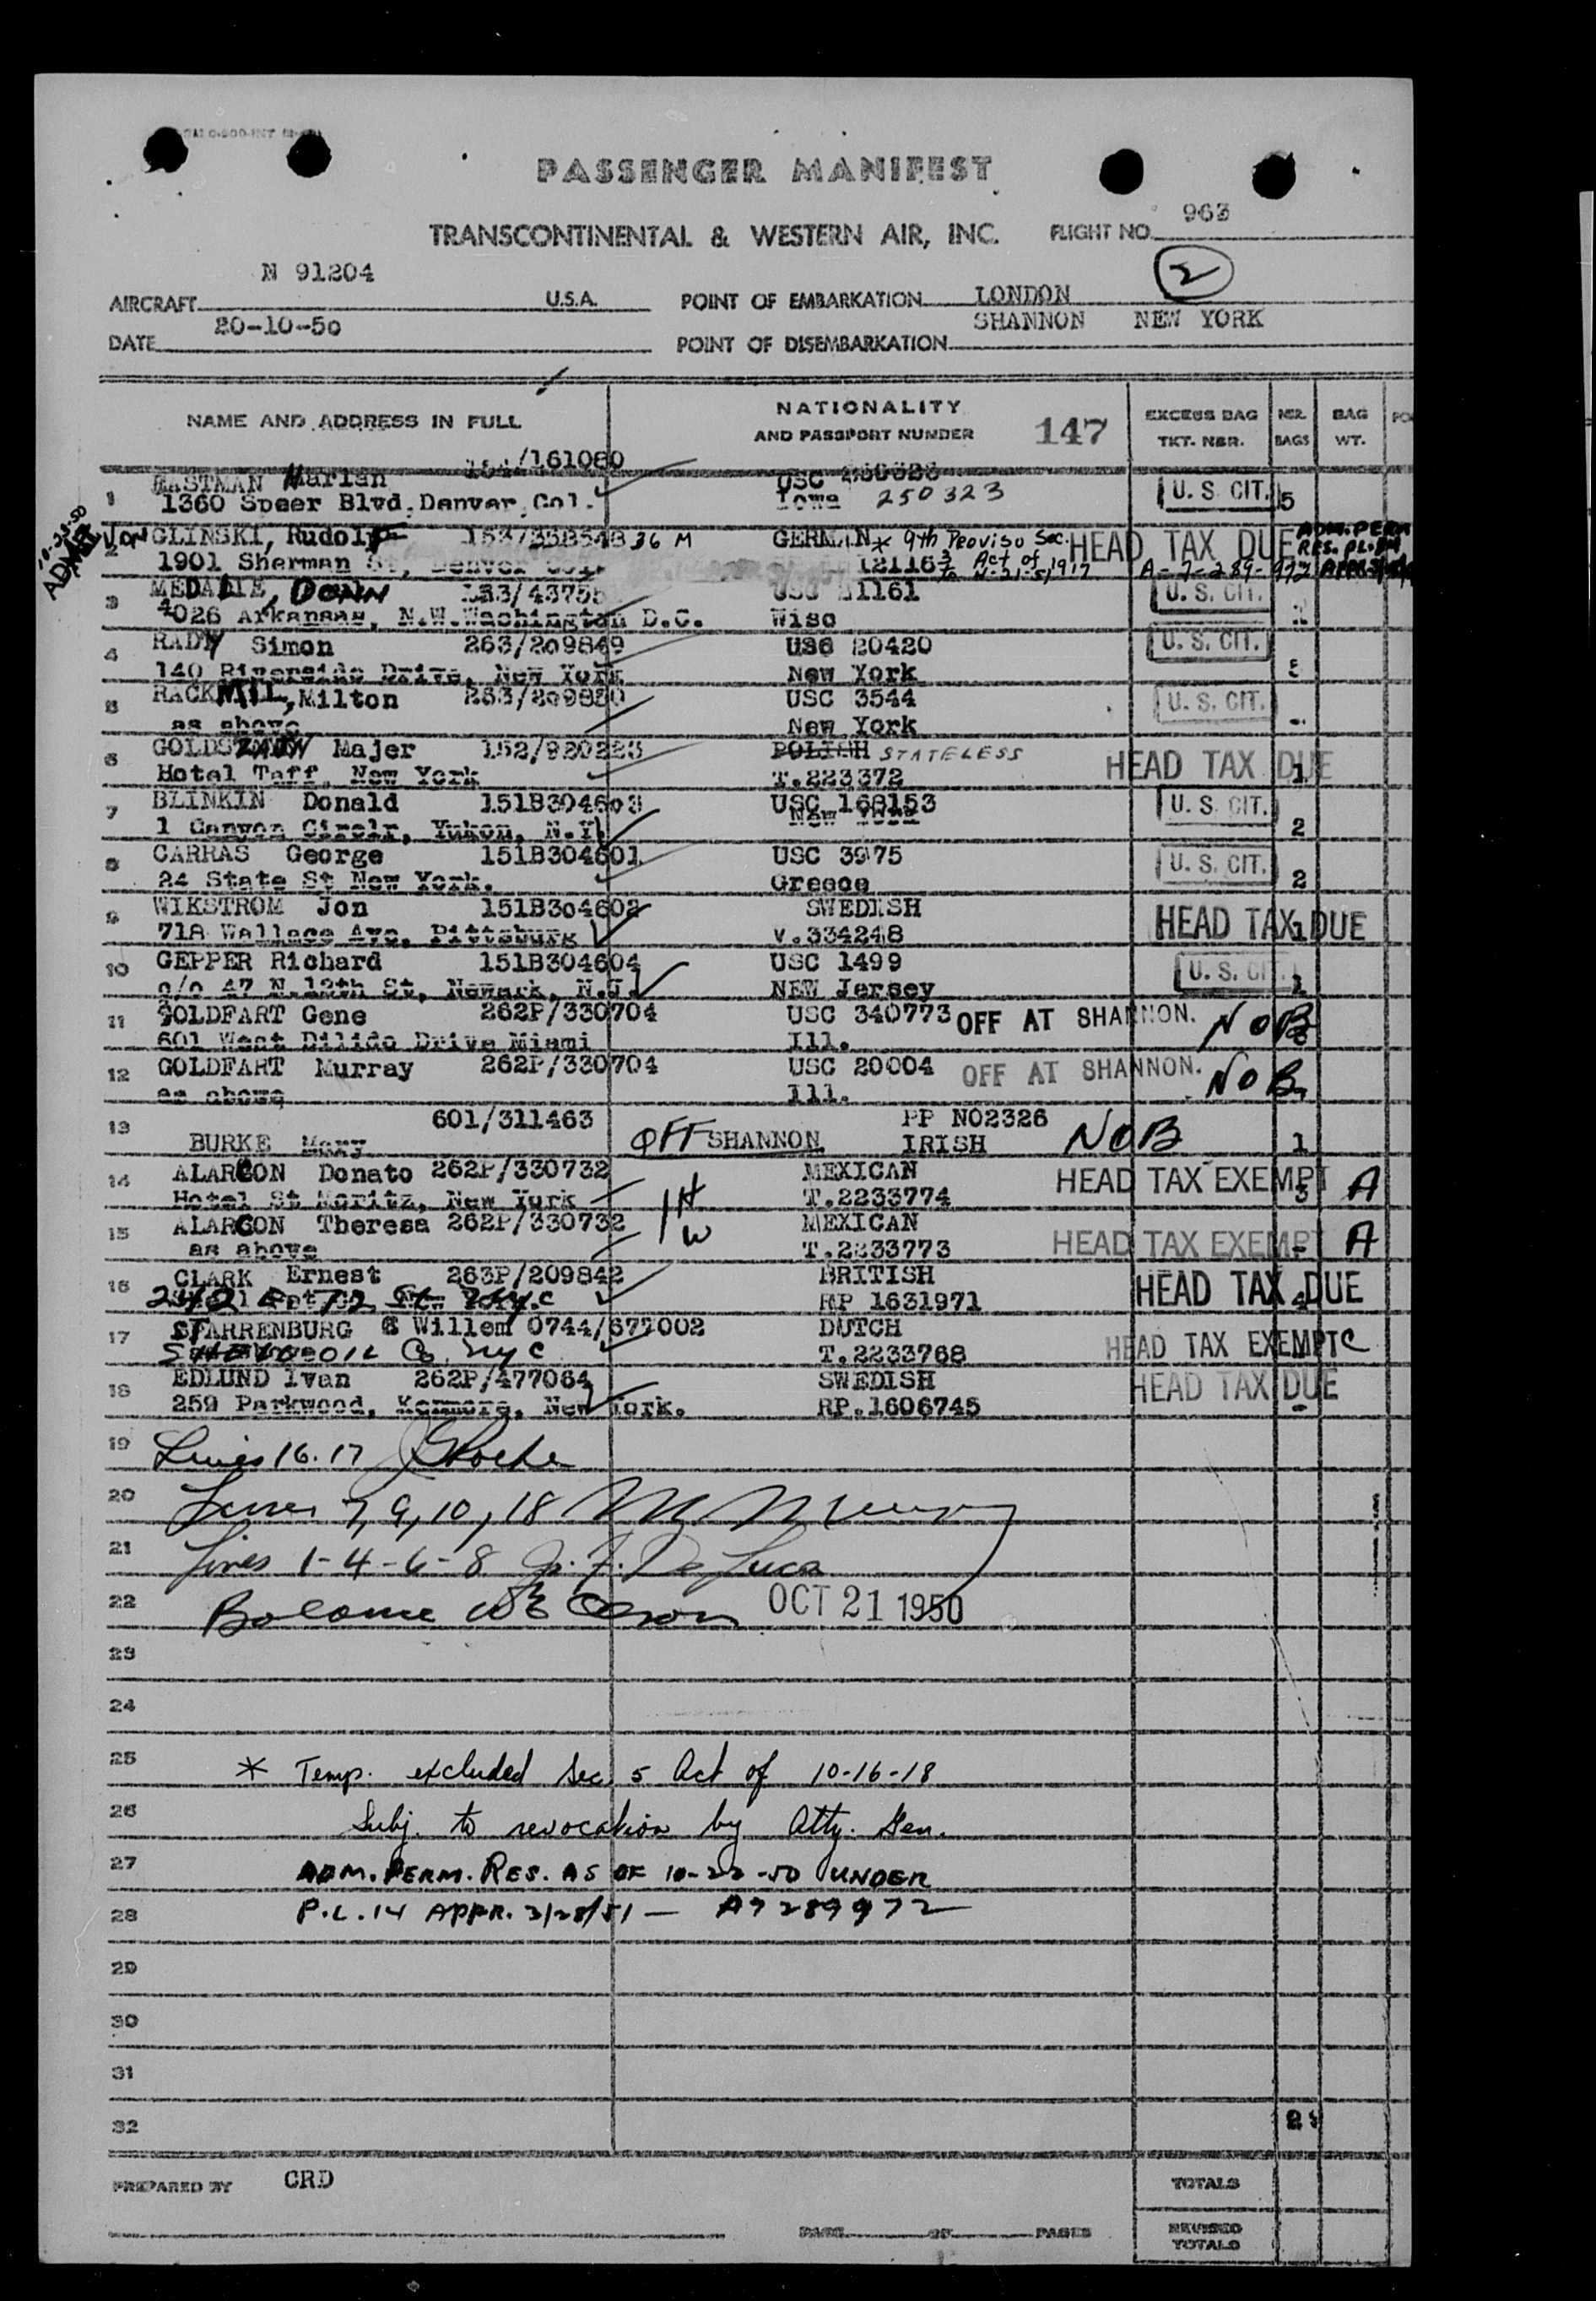 PASSENGER MANIFEST
TRANSCONTINENTAL & WESTERN AIR, INC. FLIGHT NO. 963
N 91204 2
AIRCRAFT U.S.A. POINT OF EMBARKATION LONDON
20-10-50 SHANNON NEW YORK
DATE POINT OF DISEMBARKATION
NAME AND ADDRESS IN FULL NATIONALITY AND PASSPORT NUMBER 147 EXCESS BAG TKT. NBR. NBR. BAGS BAG WT.
/161080 USC
1 EASTMAN Marian U. S. CIT. 5
1360 Speer Blvd. Denver, Col. Iowa 250323
VON GLINSKI, Rudolf 36 M GERMAN * 9th Proviso Sec. HEAD TAX DUE ADM. PERM
2 1901 Sherman St, Denver Col. 12116 Act of 1917 A-7-289-972
10-22-50
3 MEDALIE, DONN USC U. S. CIT.
4026 Arkansas, N.W. Washington D.C. Wisc
4 RADY Simon 263/209849 USC 20420 U. S. CIT.
140 Riverside Drive, New York New York
5 RACKMIL, Milton 263/209850 USC 3544 U. S. CIT. -
as above New York
6 Majer 152/920223 POLISH STATELESS HEAD TAX DUE 1
Hotel Taff, New York T.223372
7 BLINKIN Donald 151B304603 USC 168153 U. S. CIT. 2
1 Canyon Circlr, Yukon, N.Y. New York
8 CARRAS George 151B304601 USC 3975 U. S. CIT. 2
24 State St New York. Greece
9 WIKSTROM Jon 151B304602 SWEDISH HEAD TAX DUE 1
718 Wallace Ave, Pittsburg V.334248
10 GEPPER Richard 151B304604 USC 1499 U. S. CIT. 1
c/o 47 N.12th St, Newark, N.J. NEW Jersey
11 GOLDFART Gene 262P/330704 USC 340773 OFF AT SHANNON. NOB
601 West Dilido Drive Miami Ill.
12 GOLDFART Murray 262P/330704 USC 20004 OFF AT SHANNON. NOB
as above Ill.
13 601/311463 PP NO2326
BURKE Mary OFF SHANNON IRISH NOB 1
14 ALARCON Donato 262P/330732 MEXICAN HEAD TAX EXEMPT 3 A
Hotel St Moritz, New York T.2233774 1 H
15 ALARCON Theresa 262P/330732 W MEXICAN HEAD TAX EXEMPT - A
as above T.2233773
16 CLARK Ernest 263P/209842 BRITISH HEAD TAX DUE 4
242 E 72 St. N.Y.C RP 1631971
17 STARRENBURG C Willem 0744/677002 DUTCH HEAD TAX EXEMPT C
OIL Co. NYC T.2233768
18 EDLUND Ivan 262P/477064 SWEDISH HEAD TAX DUE -
259 Parkwood, Kenmore, New York. RP.1606745
19 Lines 16.17
20 Lines 7, 9, 10, 18
21 Lines 1-4-6-8 De Luca
22 Balance OCT 21 1950
23
24
25 * Temp. excluded Sec 5 Act of 10-16-18
26 Subj. to revocation by Atty. Gen.
27 ADM. PERM. RES. AS OF 10-22-50 UNDER
28 P.L. 14 APPR. 3/28/51 — A7289972
29
30
31
32
PREPARED BY CRD TOTALS
PAGE OF PAGES REVISED TOTALS